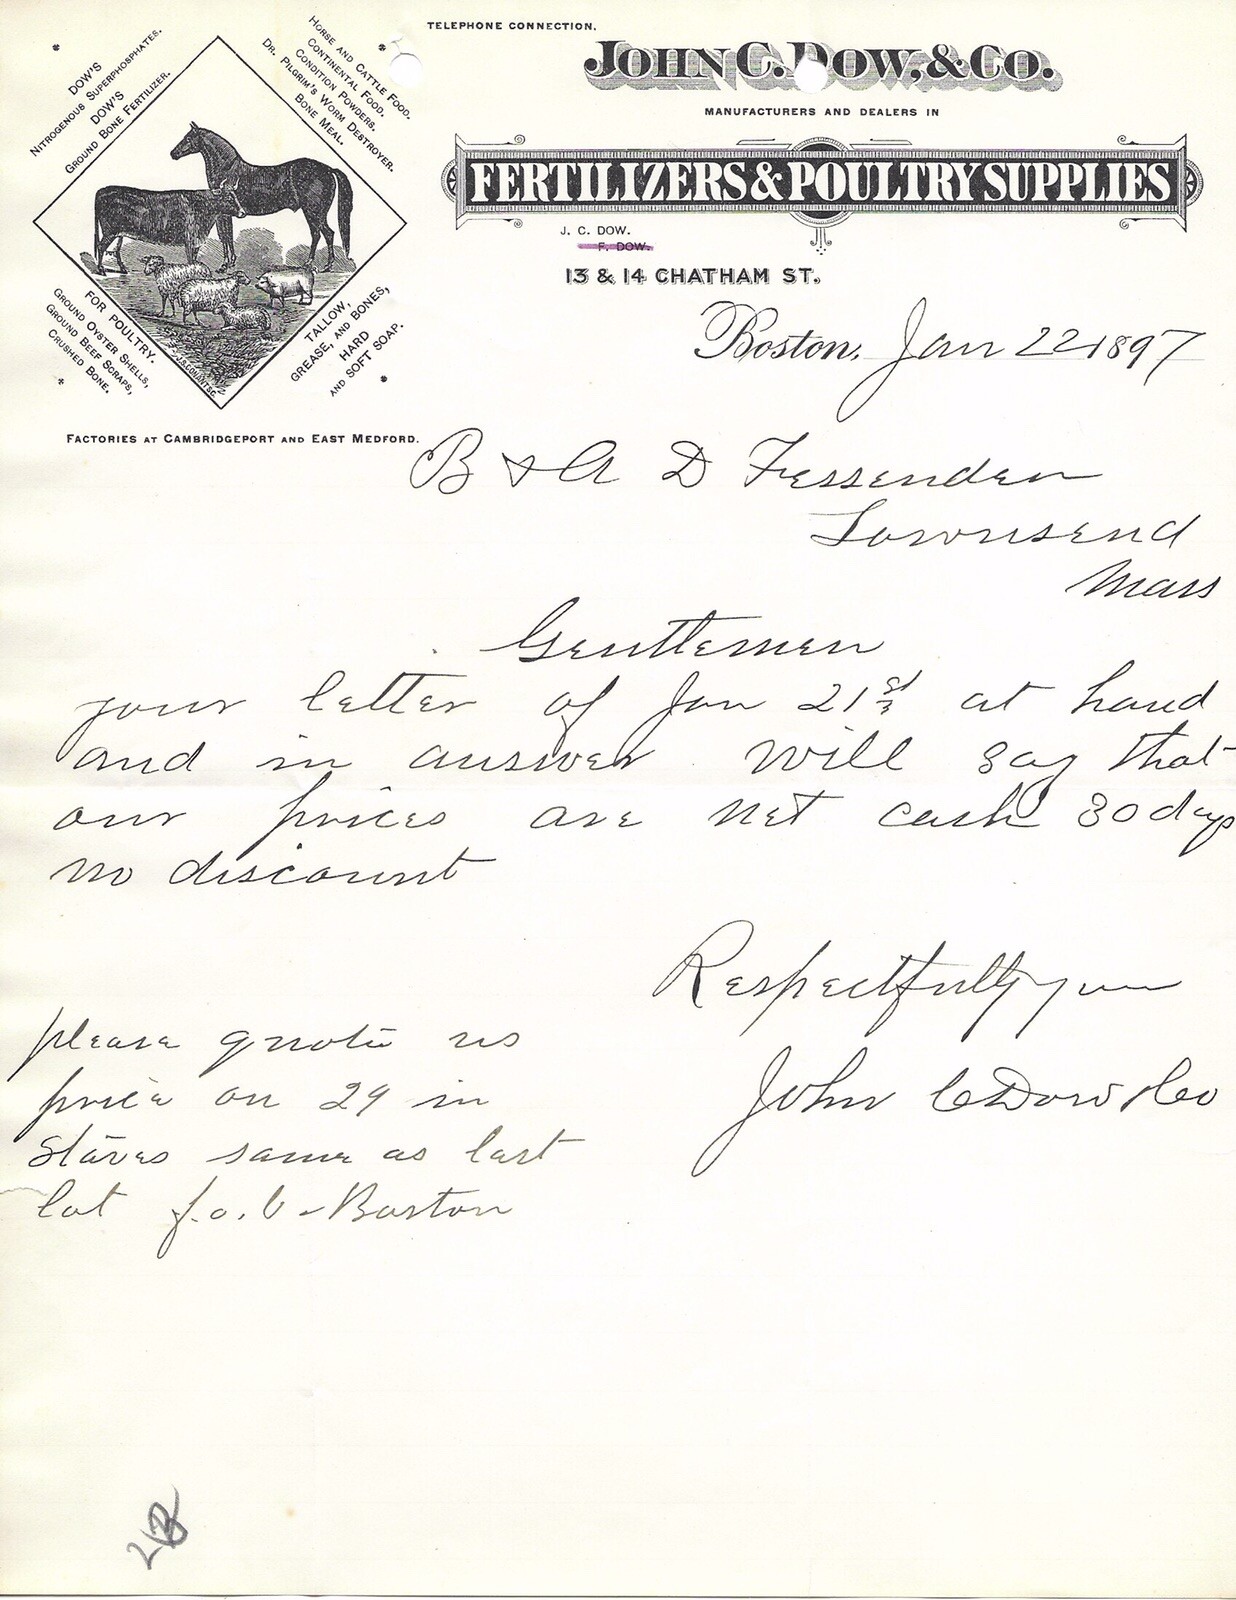 TELEPHONE CONNECTION.
JOHN C. DOW, & CO.
MANUFACTURERS AND DEALERS IN
FERTILIZERS & POULTRY SUPPLIES
J. C. DOW.
F. DOW.
13 & 14 CHATHAM ST.
DOW'S
NITROGENOUS SUPERPHOSPHATES.
DOW'S
GROUND BONE FERTILIZER.
HORSE AND CATTLE FOOD.
CONTINENTAL FOOD.
CONDITION POWDERS.
DR. PILGRIM'S WORM DESTROYER.
BONE MEAL.
FOR POULTRY.
GROUND OYSTER SHELLS,
GROUND BEEF SCRAPS,
CRUSHED BONE.
TALLOW,
GREASE, AND BONES,
HARD
AND SOFT SOAP.
FACTORIES AT CAMBRIDGEPORT AND EAST MEDFORD.
Boston, Jan 22 1897
B & A D Fessenden
Townsend
Mass
Gentlemen
your letter of Jan 21st at hand
and in answer will say that
our prices are net cash 30 days
no discount
Respectfully your
John C Dow & Co
please quote us
price on 29 in
staves same as last
lot f.o.b Boston